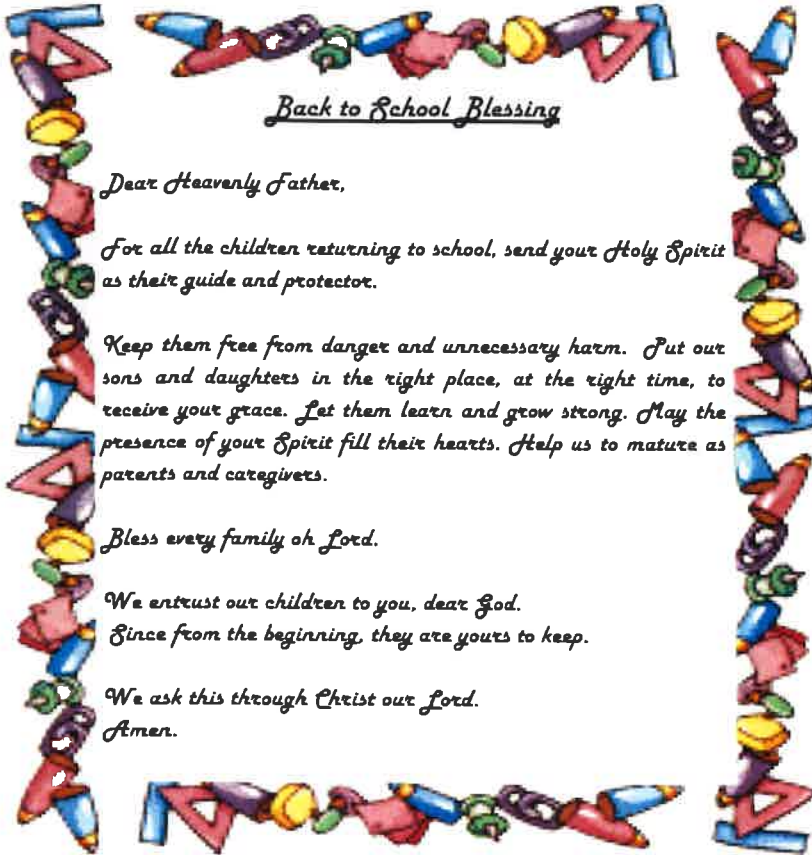 Back to School Blessing
Dear Heavenly Father,
For all the children returning to school, send your Holy Spirit
as their guide and protector.
Keep them free from danger and unnecessary harm. Put our
sons and daughters in the right place, at the right time, to
receive your grace. Let them learn and grow strong. May the
presence of your Spirit fill their hearts. Help us to mature as
parents and caregivers.
Bless every family oh Lord.
We entrust our children to you, dear God.
Since from the beginning, they are yours to keep.
We ask this through Christ our Lord.
Amen.